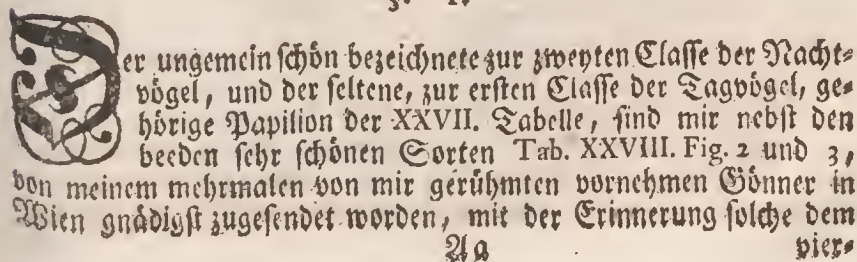 §. 1.
Der ungemein schön bezeichnete zur zweyten Classe der Nacht-
vögel, und der seltene, zur ersten Classe der Tagvögel, ge-
hörige Papilion der XXVII. Tabelle, sind mir nebst den
beeden sehr schönen Sorten Tab. XXVIII. Fig. 2 und 3,
von meinem mehrmalen von mir gerühmten vornehmen Gönner in
Wien gnädigst zugesendet worden, mit der Erinnerung solche dem
Aa vier-